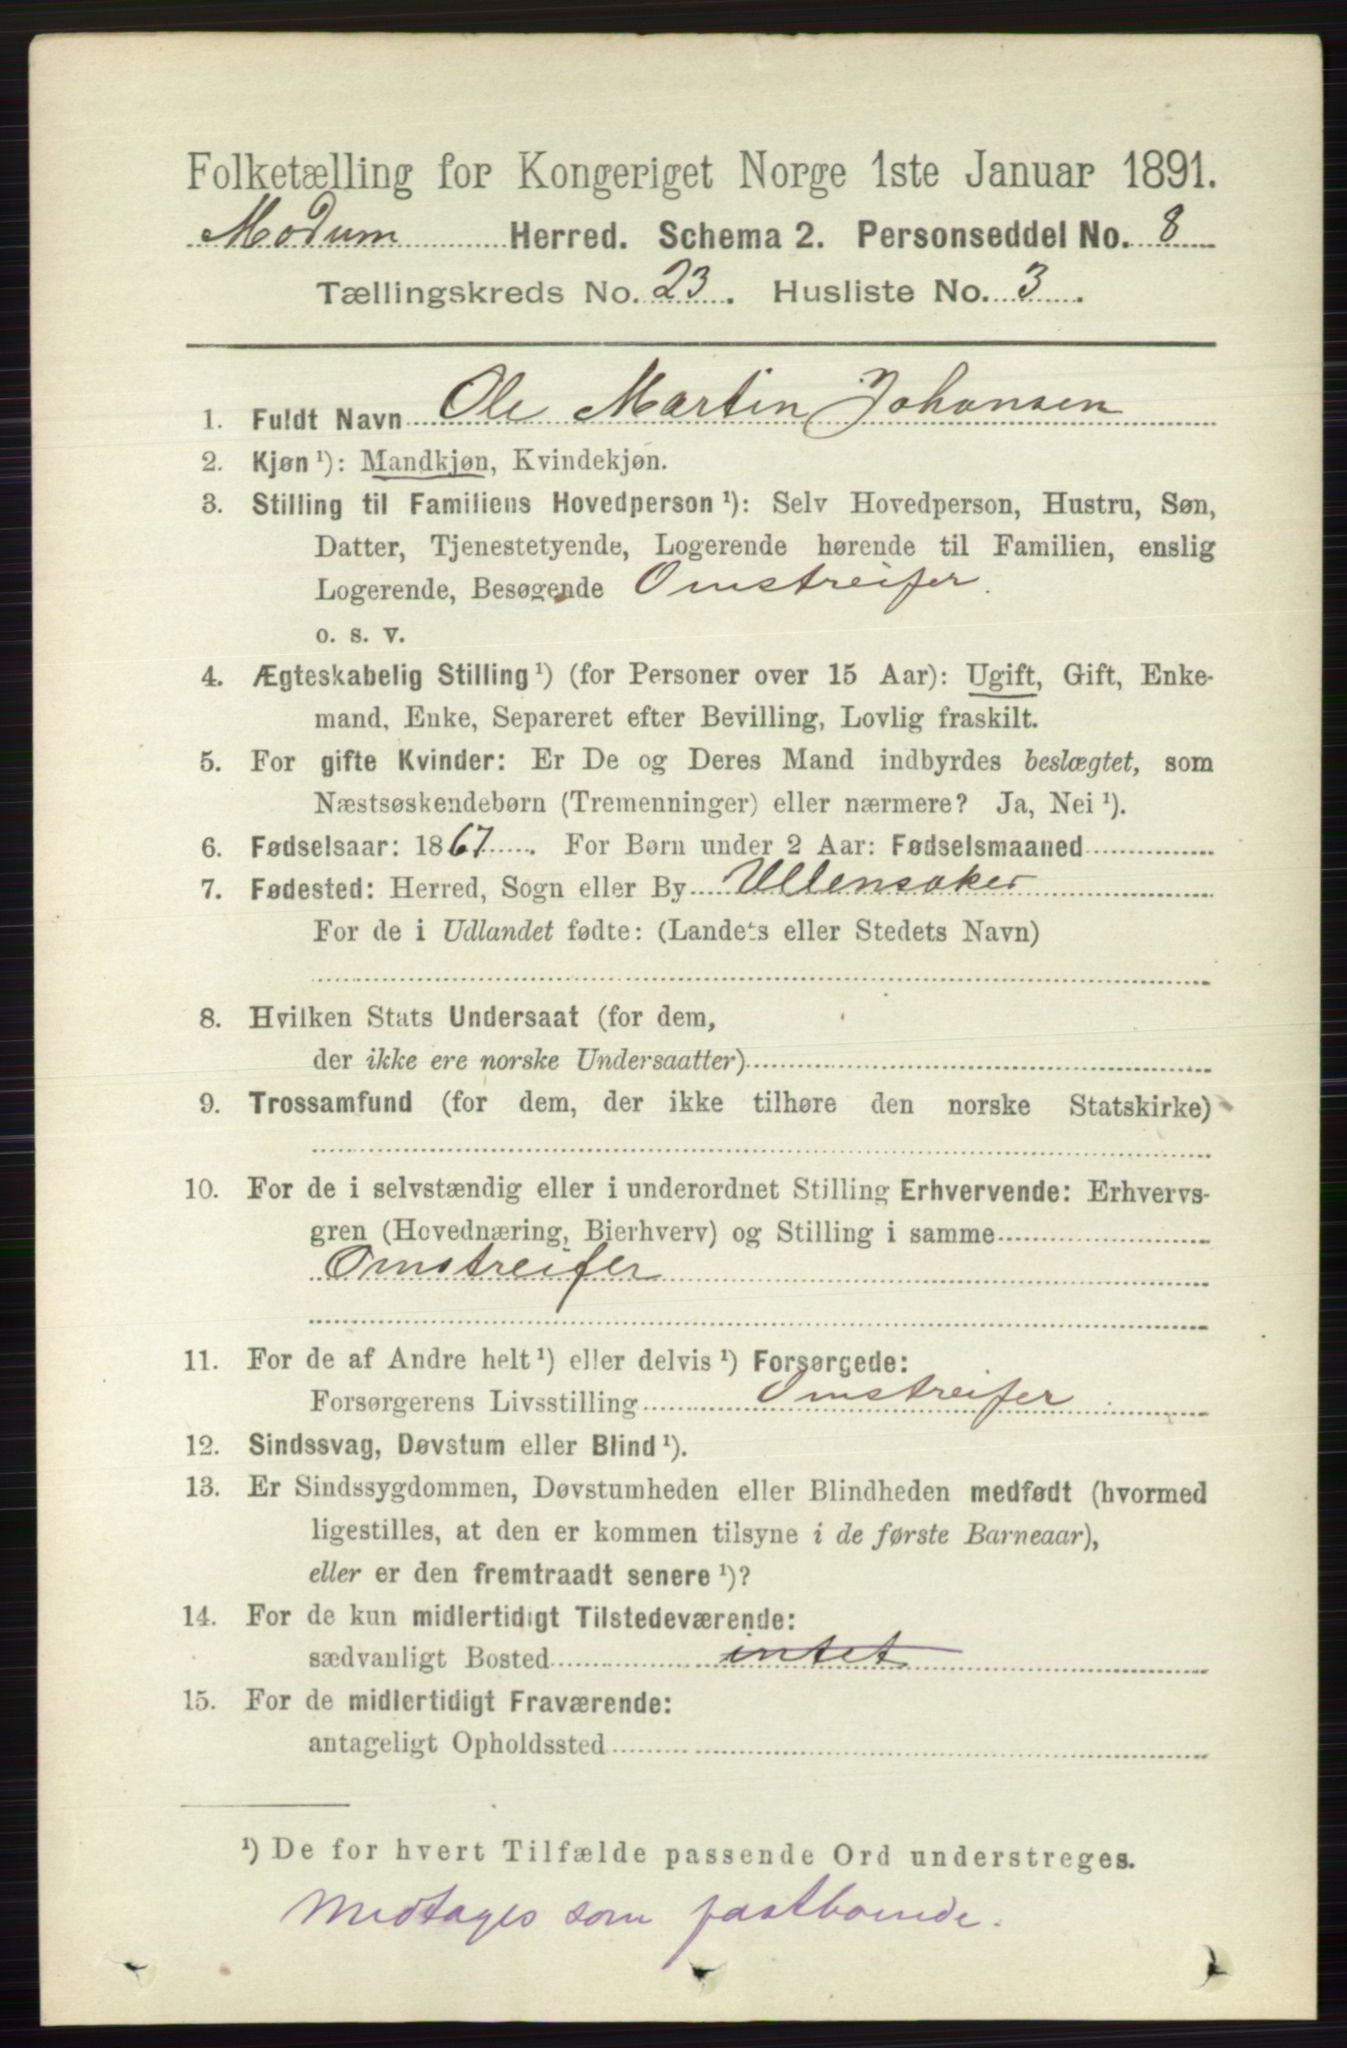 Folketælling for Kongeriget Norge 1ste Januar 1891.
Modum Herred. Schema 2. Personseddel No. 8
Tællingskreds No. 23. Husliste No. 3.
1. Fuldt Navn Ole Martin Johansen
2. Kjøn ¹): Mandkjøn, Kvindekjøn.
3. Stilling til Familiens Hovedperson ¹): Selv Hovedperson, Hustru, Søn,
Datter, Tjenestetyende, Logerende hørende til Familien, enslig
Logerende, Besøgende Omstreifer.
o. s. v.
4. Ægteskabelig Stilling ¹) (for Personer over 15 Aar): Ugift, Gift, Enke-
mand, Enke, Separeret efter Bevilling, Lovlig fraskilt.
5. For gifte Kvinder: Er De og Deres Mand indbyrdes beslægtet, som
Næstsøskendebørn (Tremenninger) eller nærmere? Ja, Nei ¹).
6. Fødselsaar: 1867. For Børn under 2 Aar: Fødselsmaaned
7. Fødested: Herred, Sogn eller By Ullensaker
For de i Udlandet fødte: (Landets eller Stedets Navn)
8. Hvilken Stats Undersaat (for dem,
der ikke ere norske Undersaatter)
9. Trossamfund (for dem, der ikke tilhøre den norske Statskirke)
10. For de i selvstændig eller i underordnet Stilling Erhvervende: Erhvervs-
gren (Hovednæring, Bierhverv) og Stilling i samme
Omstreifer
11. For de af Andre helt ¹) eller delvis ¹) Forsørgede:
Forsørgerens Livsstilling Omstreifer
12. Sindssvag, Døvstum eller Blind ¹).
13. Er Sindssygdommen, Døvstumheden eller Blindheden medfødt (hvormed
ligestilles, at den er kommen tilsyne i de første Barneaar),
eller er den fremtraadt senere ¹)?
14. For de kun midlertidigt Tilstedeværende:
sædvanligt Bosted intet
15. For de midlertidigt Fraværende:
antageligt Opholdssted
¹) De for hvert Tilfælde passende Ord understreges.
Medtages som fastboende.